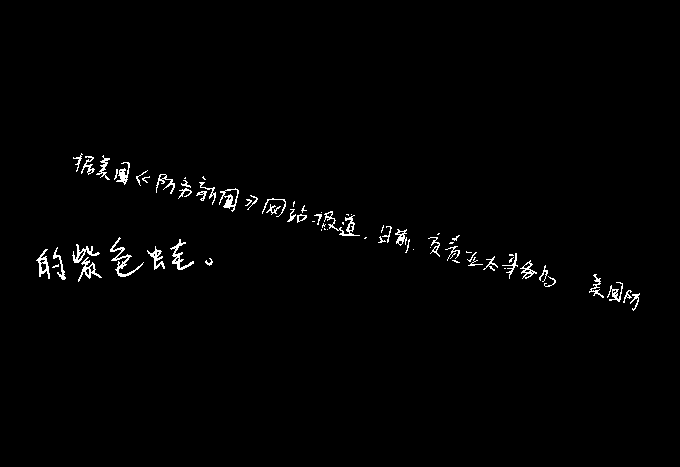 据美国《防务新闻》网站报道，目前，负责亚太事务的 美国防
的紫色蛙。